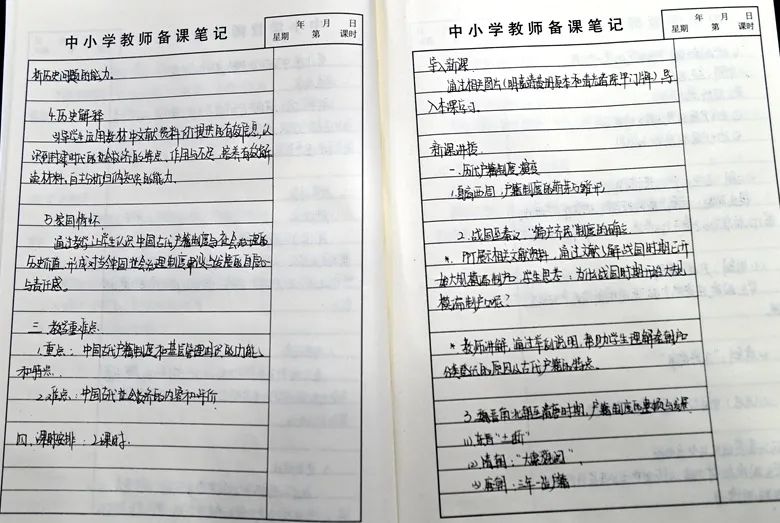 中小学教师备课笔记
年 月 日
星期 第 课时
析历史问题的能力.
4.历史解释
引导学生运用教材中文献资料所提供的有效信息,认
识不同时期的社会救济的特点、作用与不足,培养有效解
读材料,自主分析归纳知识的能力.
5.家国情怀
通过教学让学生认识中国古代户籍制度与社会治理的
历史价值,形成对当今中国社会治理制度建设与发展的自信心
与责任感.
三. 教学重难点
1.重点: 中国古代户籍制度和基层管理组织的功能
和特点.
2.难点:中国古代社会救济的内容和评价
四. 课时安排: 2课时.
中小学教师备课笔记
年 月 日
星期 第 课时
导入新课
通过相关图片
入本课学习.
新课讲授
一.历代户籍制度演变
1.夏商西周,户籍制度的萌芽与
2.战国至秦汉"编户齐民"制度的确立
*. PPT展示相关文献资料,通过文献了解战国时期已开
始大规模编制户,学生思考:为什么战国时期开始大规
模编制户口呢?
* 教师讲解,通过举例说明,帮助学生理解
的原因及古代户籍的特点.
3.魏晋南北朝至隋唐时期,户籍制度的重建与发展
(1)东晋"土断"
(2)隋朝:"大索貌阅"
(3)唐朝:三年一造户籍